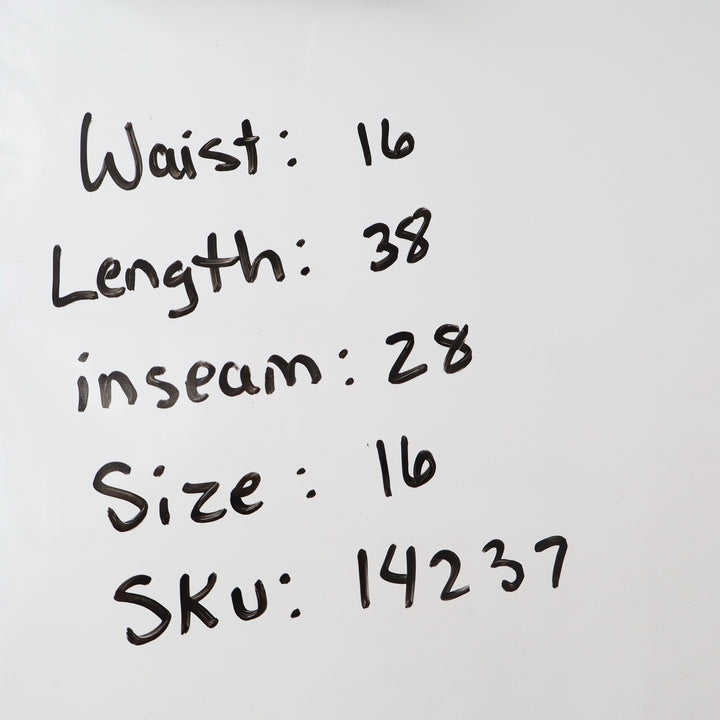 Waist: 16
Length: 38
inseam: 28
Size: 16
SKU: 14237